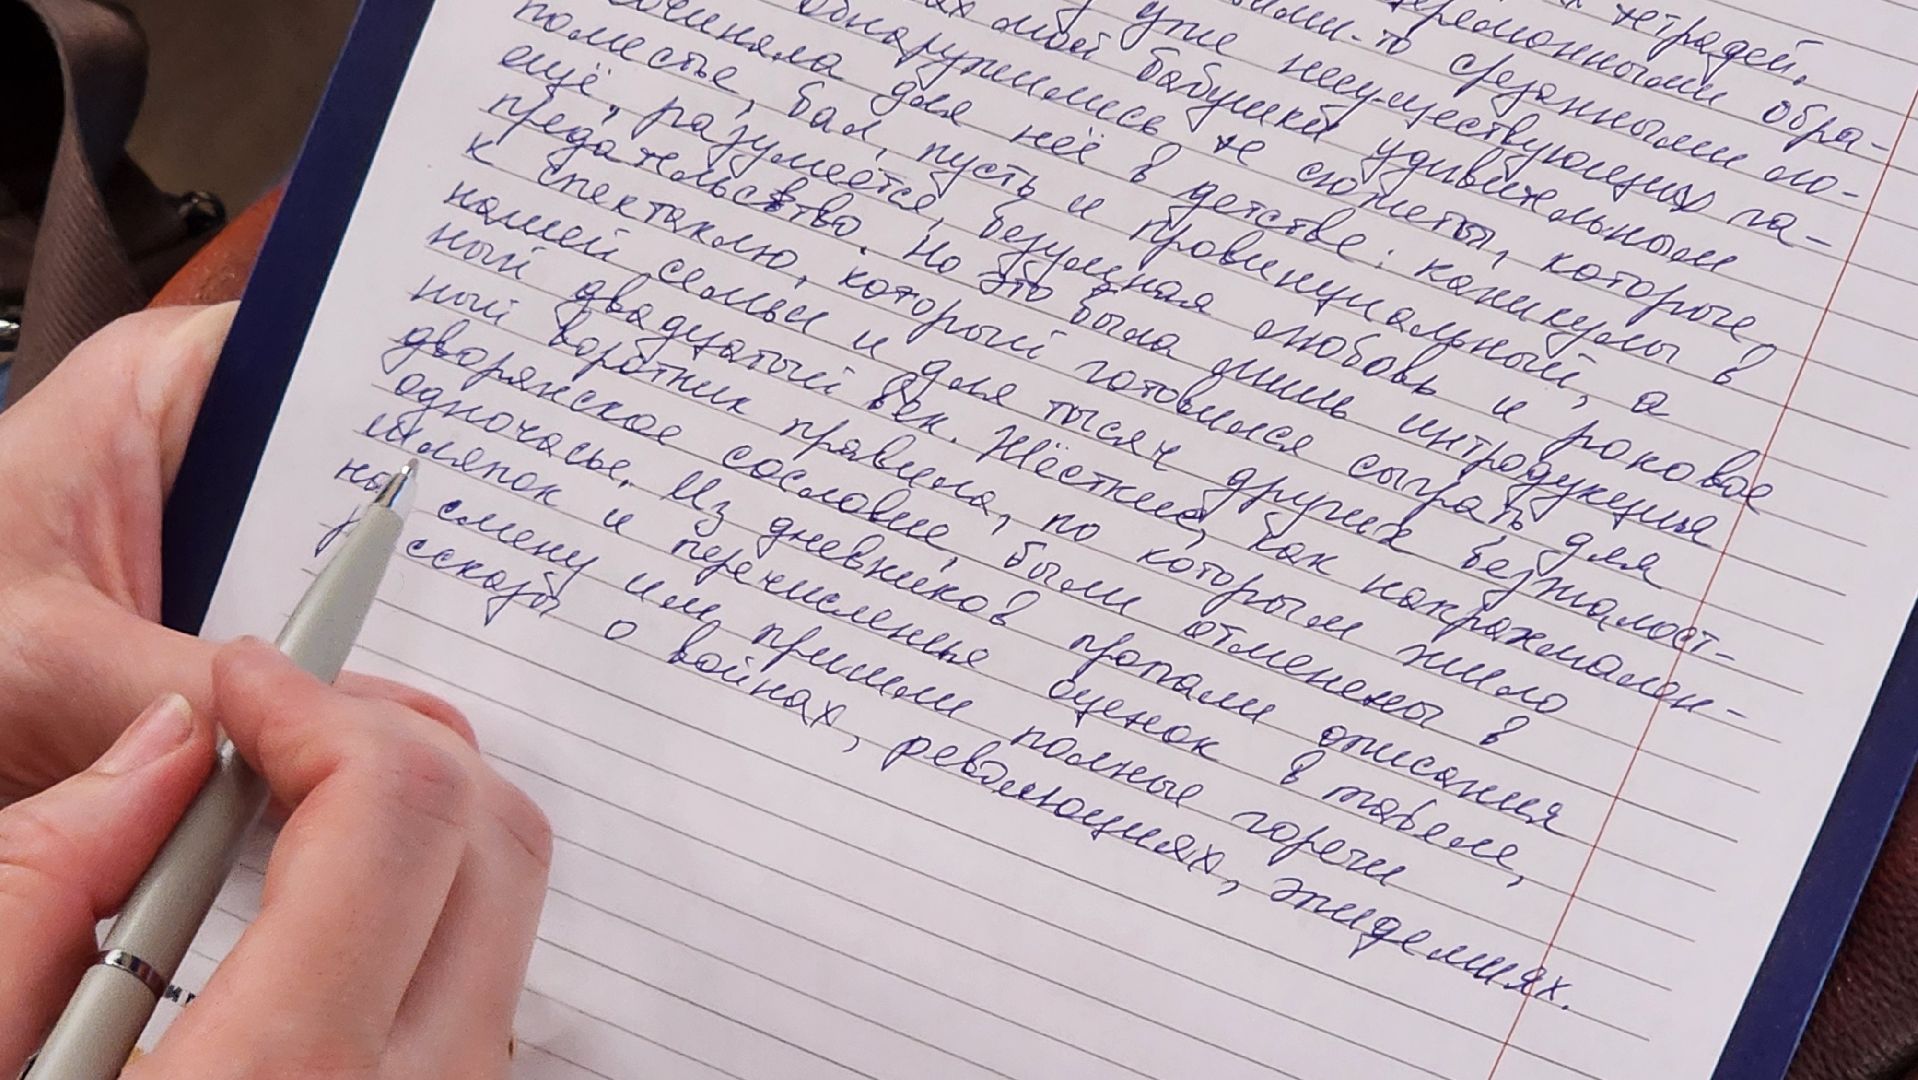 тетрадей.
церемонными обра-
срезанными
уже несуществующих га-
моей бабушки удивительным
обнаружились те сюжеты, которые
сочиняла для неё в детстве: каникулы в
поместье, бал, пусть и провинциальный, а
ещё, разумеется, безумная любовь и роковое
предательство. Но это была лишь интродукция
к спектаклю, который готовился сыграть для
нашей семьи и для тысяч других безжалост-
ный двадцатый век. Жёсткие, как накрахмален-
ный воротник правила, по которым жило
дворянское сословие, были отменены в
одночасье. Из дневников пропали описания
шляпок и перечисленье оценок в табеле,
на смену им пришли полные горечи
рассказы о войнах, революциях, эпидемиях.